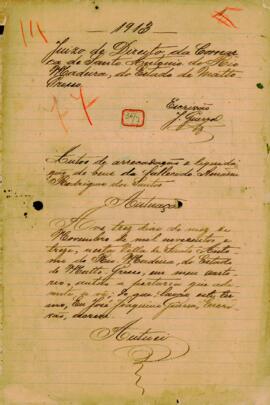 1913
Juizo de Direito, da Comar-
ca de Santo Antonio do Rio
Madeira, do Estado de Matto
Grosso
Escrivão
J. Guerra
Autos de arrecadação e liquida-
ção de bens do fallecido
Rodrigues dos Santos
Autuação
Aos tres dias do mez de
Novembro de mil novecentos e
treze, nesta Villa de Santo Anto-
nio do Rio Madeira, do Estado
de Matto-Grosso, em meu carto-
rio, autuo a portaria que
do que lavro este ter-
mo, Eu José Joaquim Guerra, Escri-
vão, escrevi
Autuei